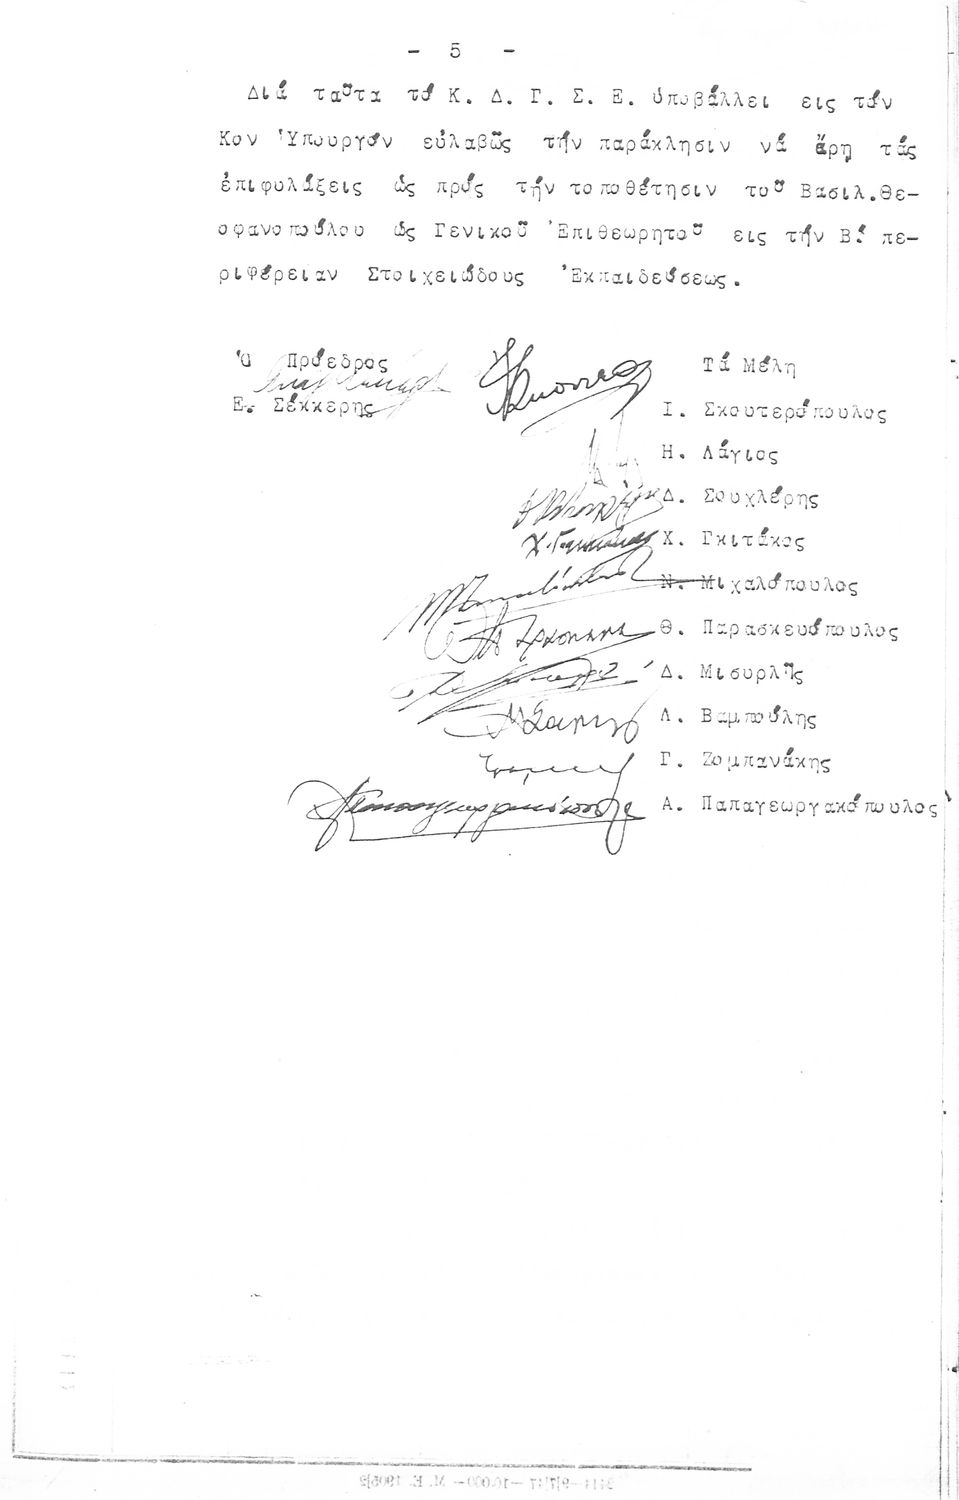 - 5 -
Διά ταῦτα τό Κ. Δ. Γ. Σ. Ε. ὑποβάλλει εις τόν
Κον Ὑπουργόν εὐλαβῶς τήν παράκλησιν νά ἄρη τάς
ἐπιφυλάξεις ὡς πρός τήν τοποθέτησιν τοῦ Βασιλ.Θε-
οφανοπούλου ὡς Γενικοῦ Ἐπιθεωρητοῦ εις τήν Β! πε-
ριφέρειαν Στοιχειώδους Ἐκπαιδεύσεως.
Ὁ Πρόεδρος Τά Μέλη
Ε. Σέκκερης Ι. Σκουτερόπουλος
Η. Λάγιος
Δ. Σουχλέρης
Χ. Γκιτάκος
Ν. Μιχαλόπουλος
Θ. Παρασκευόπουλος
Δ. Μισυρλῆς
Λ. Βαμπούλης
Γ. Ζομπανάκης
Α. Παπαγεωργακόπουλος